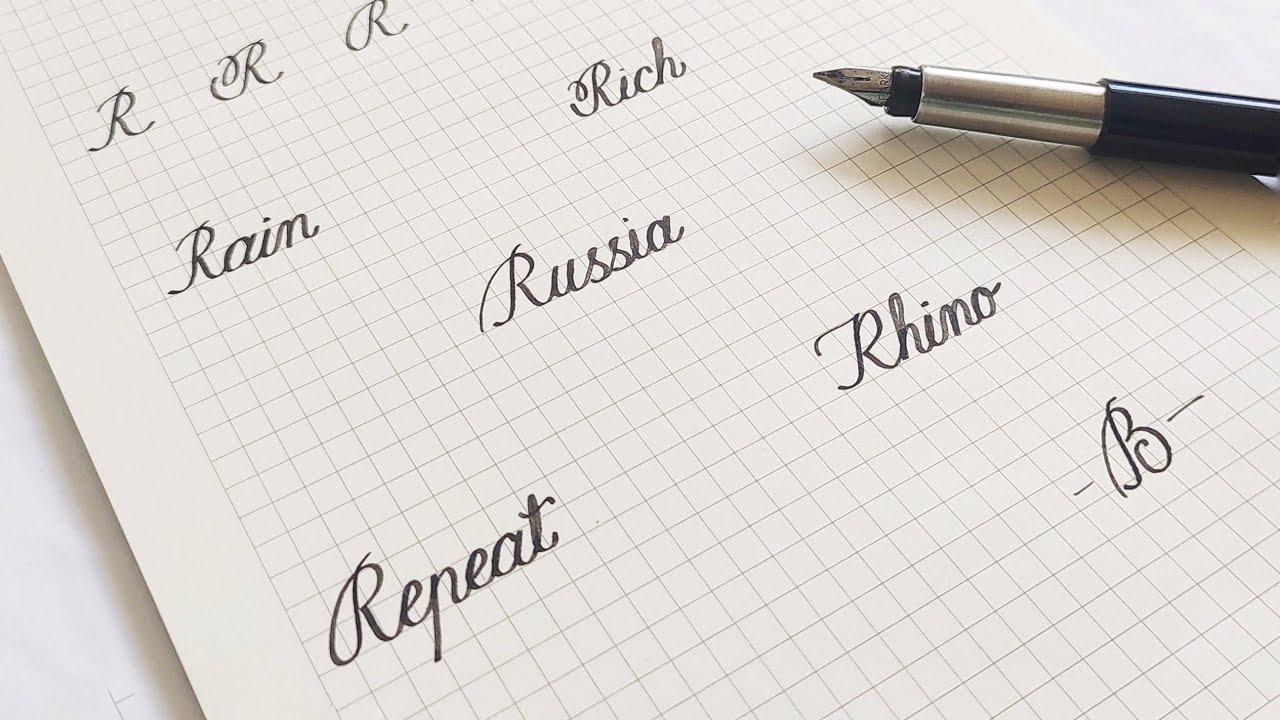 R R R
Rich
Rain
Russia
Rhino
-B-
Repeat